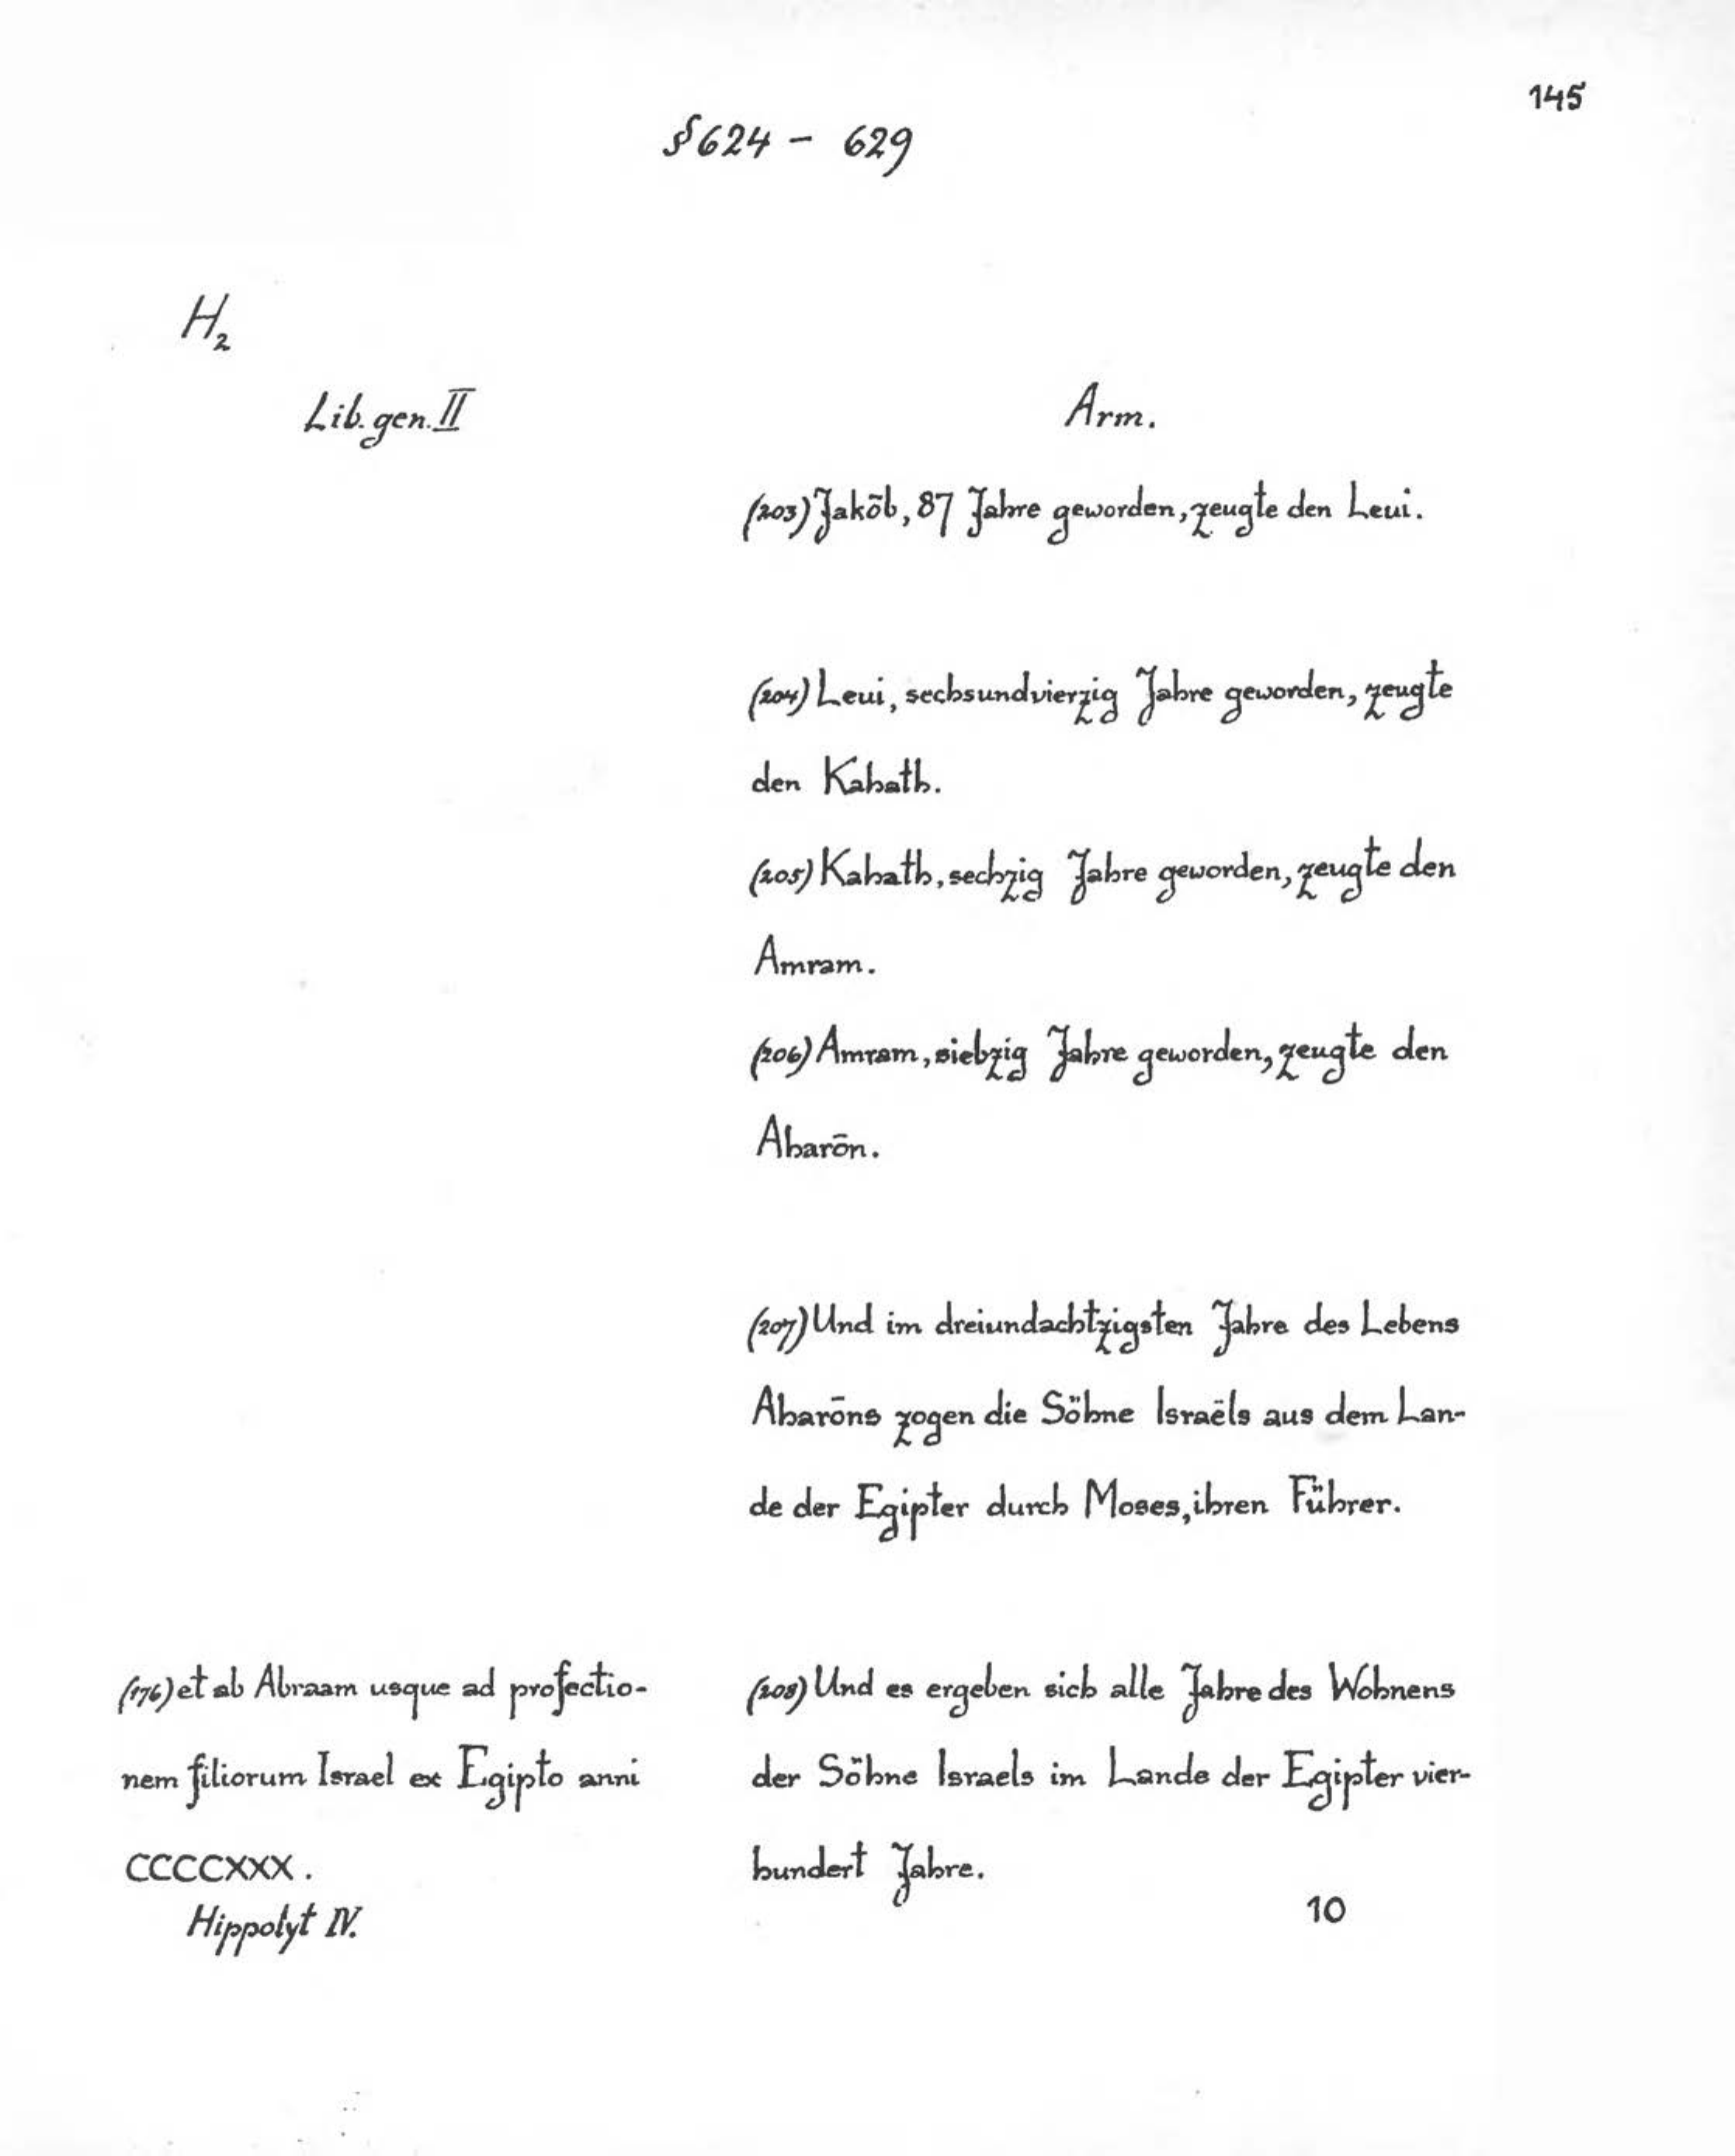 145
§ 624 - 629
H₂
Lib. gen. II
Arm.
(203) Jakōb, 87 Jahre geworden, zeugte den Leui.
(204) Leui, sechsundvierzig Jahre geworden, zeugte
den Kahath.
(205) Kahath, sechzig Jahre geworden, zeugte den
Amram.
(206) Amram, siebzig Jahre geworden, zeugte den
Aharōn.
(207) Und im dreiundachtzigsten Jahre des Lebens
Aharōns zogen die Söhne Israëls aus dem Lan-
de der Egipter durch Moses, ihren Führer.
(176) et ab Abraam usque ad profectio-
nem filiorum Israel ex Egipto anni
CCCCXXX.
(208) Und es ergeben sich alle Jahre des Wohnens
der Söhne Israels im Lande der Egipter vier-
hundert Jahre.
Hippolyt IV.
10